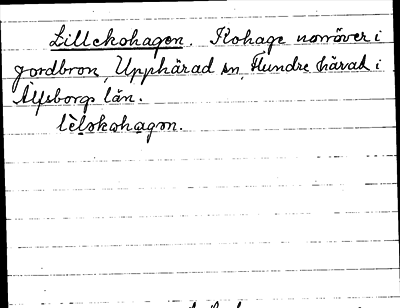 Lillekohagen. Kohage norröver i
jordbron, Upphärad sn, Flundre härad i
Älfsborgs län.
lèlskohagen.